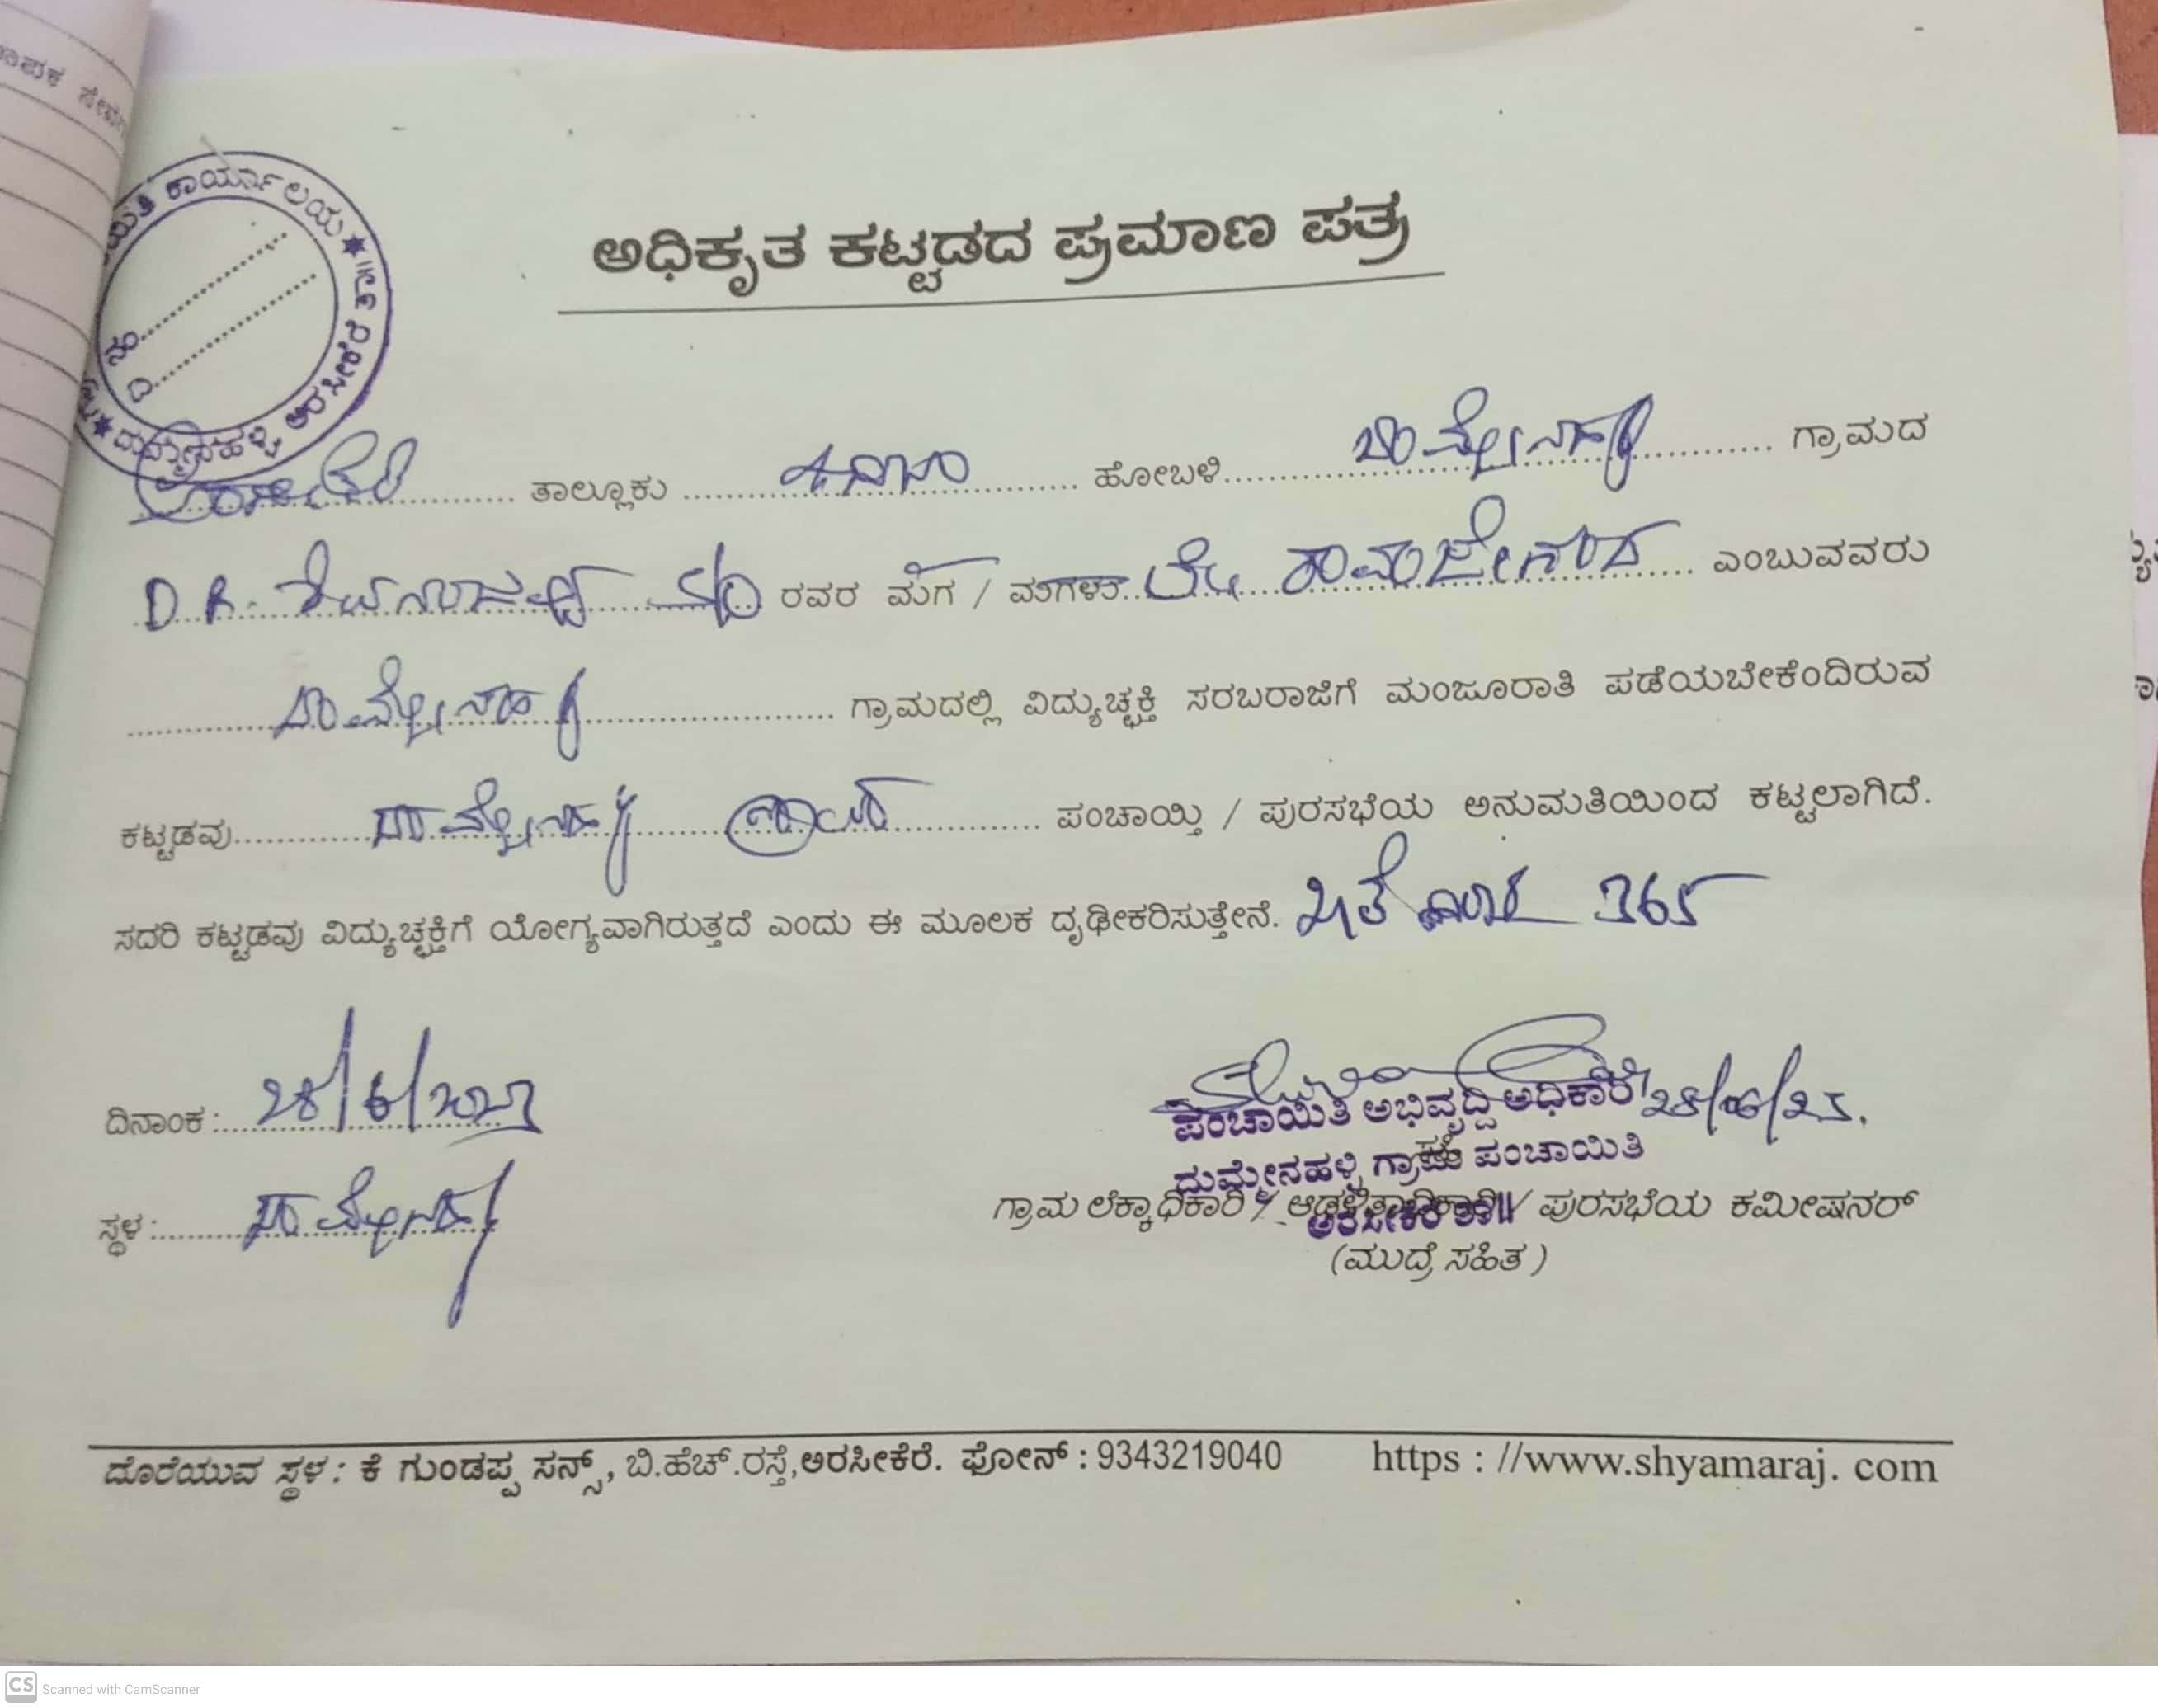 ಅಧಿಕೃತ ಕಟ್ಟಡದ ಪ್ರಮಾಣ ಪತ್ರ
ಕಾರ್ಯಾಲಯ ★ ದುಮ್ಮೇನಹಳ್ಳಿ ಅರಸೀಕೆರೆ ತಾ॥
ನಂ
ದಿ
ತಾಲ್ಲೂಕು ಕಸಬಾ ಹೋಬಳಿ ದುಮ್ಮೇನಹಳ್ಳಿ ಗ್ರಾಮದ
D.R. ರವರ ಮಗ / ಮಗಳು ಲೇ. ರಾಮಜೇಗೌಡ ಎಂಬುವವರು
ದುಮ್ಮೇನಹಳ್ಳಿ ಗ್ರಾಮದಲ್ಲಿ ವಿದ್ಯುಚ್ಛಕ್ತಿ ಸರಬರಾಜಿಗೆ ಮಂಜೂರಾತಿ ಪಡೆಯಬೇಕೆಂದಿರುವ
ಕಟ್ಟಡವು ದುಮ್ಮೇನಹಳ್ಳಿ ಗ್ರಾಮ ಪಂಚಾಯ್ತಿ / ಪುರಸಭೆಯ ಅನುಮತಿಯಿಂದ ಕಟ್ಟಲಾಗಿದೆ.
ಸದರಿ ಕಟ್ಟಡವು ವಿದ್ಯುಚ್ಛಕ್ತಿಗೆ ಯೋಗ್ಯವಾಗಿರುತ್ತದೆ ಎಂದು ಈ ಮೂಲಕ ದೃಢೀಕರಿಸುತ್ತೇನೆ. 365
ದಿನಾಂಕ : 28/6/2023
28/06/23.
ಪಂಚಾಯಿತಿ ಅಭಿವೃದ್ಧಿ ಅಧಿಕಾರಿ
ದುಮ್ಮೇನಹಳ್ಳಿ ಗ್ರಾಮ ಪಂಚಾಯಿತಿ
ಅರಸೀಕೆರೆ ತಾ॥
ಸ್ಥಳ : ದುಮ್ಮೇನಹಳ್ಳಿ
ಗ್ರಾಮ ಲೆಕ್ಕಾಧಿಕಾರಿ / ಆಡಳಿತಾಧಿಕಾರಿ / ಪುರಸಭೆಯ ಕಮೀಷನರ್
(ಮುದ್ರೆ ಸಹಿತ)
ದೊರೆಯುವ ಸ್ಥಳ : ಕೆ ಗುಂಡಪ್ಪ ಸನ್ಸ್, ಬಿ.ಹೆಚ್.ರಸ್ತೆ,ಅರಸೀಕೆರೆ. ಫೋನ್ : 9343219040 https : //www.shyamaraj. com
CS Scanned with CamScanner